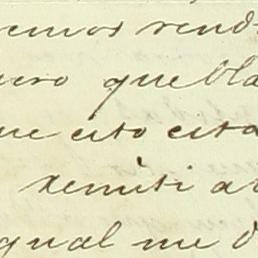 emos rend
ero que bla
ue esto esta
remiti a
qual me d